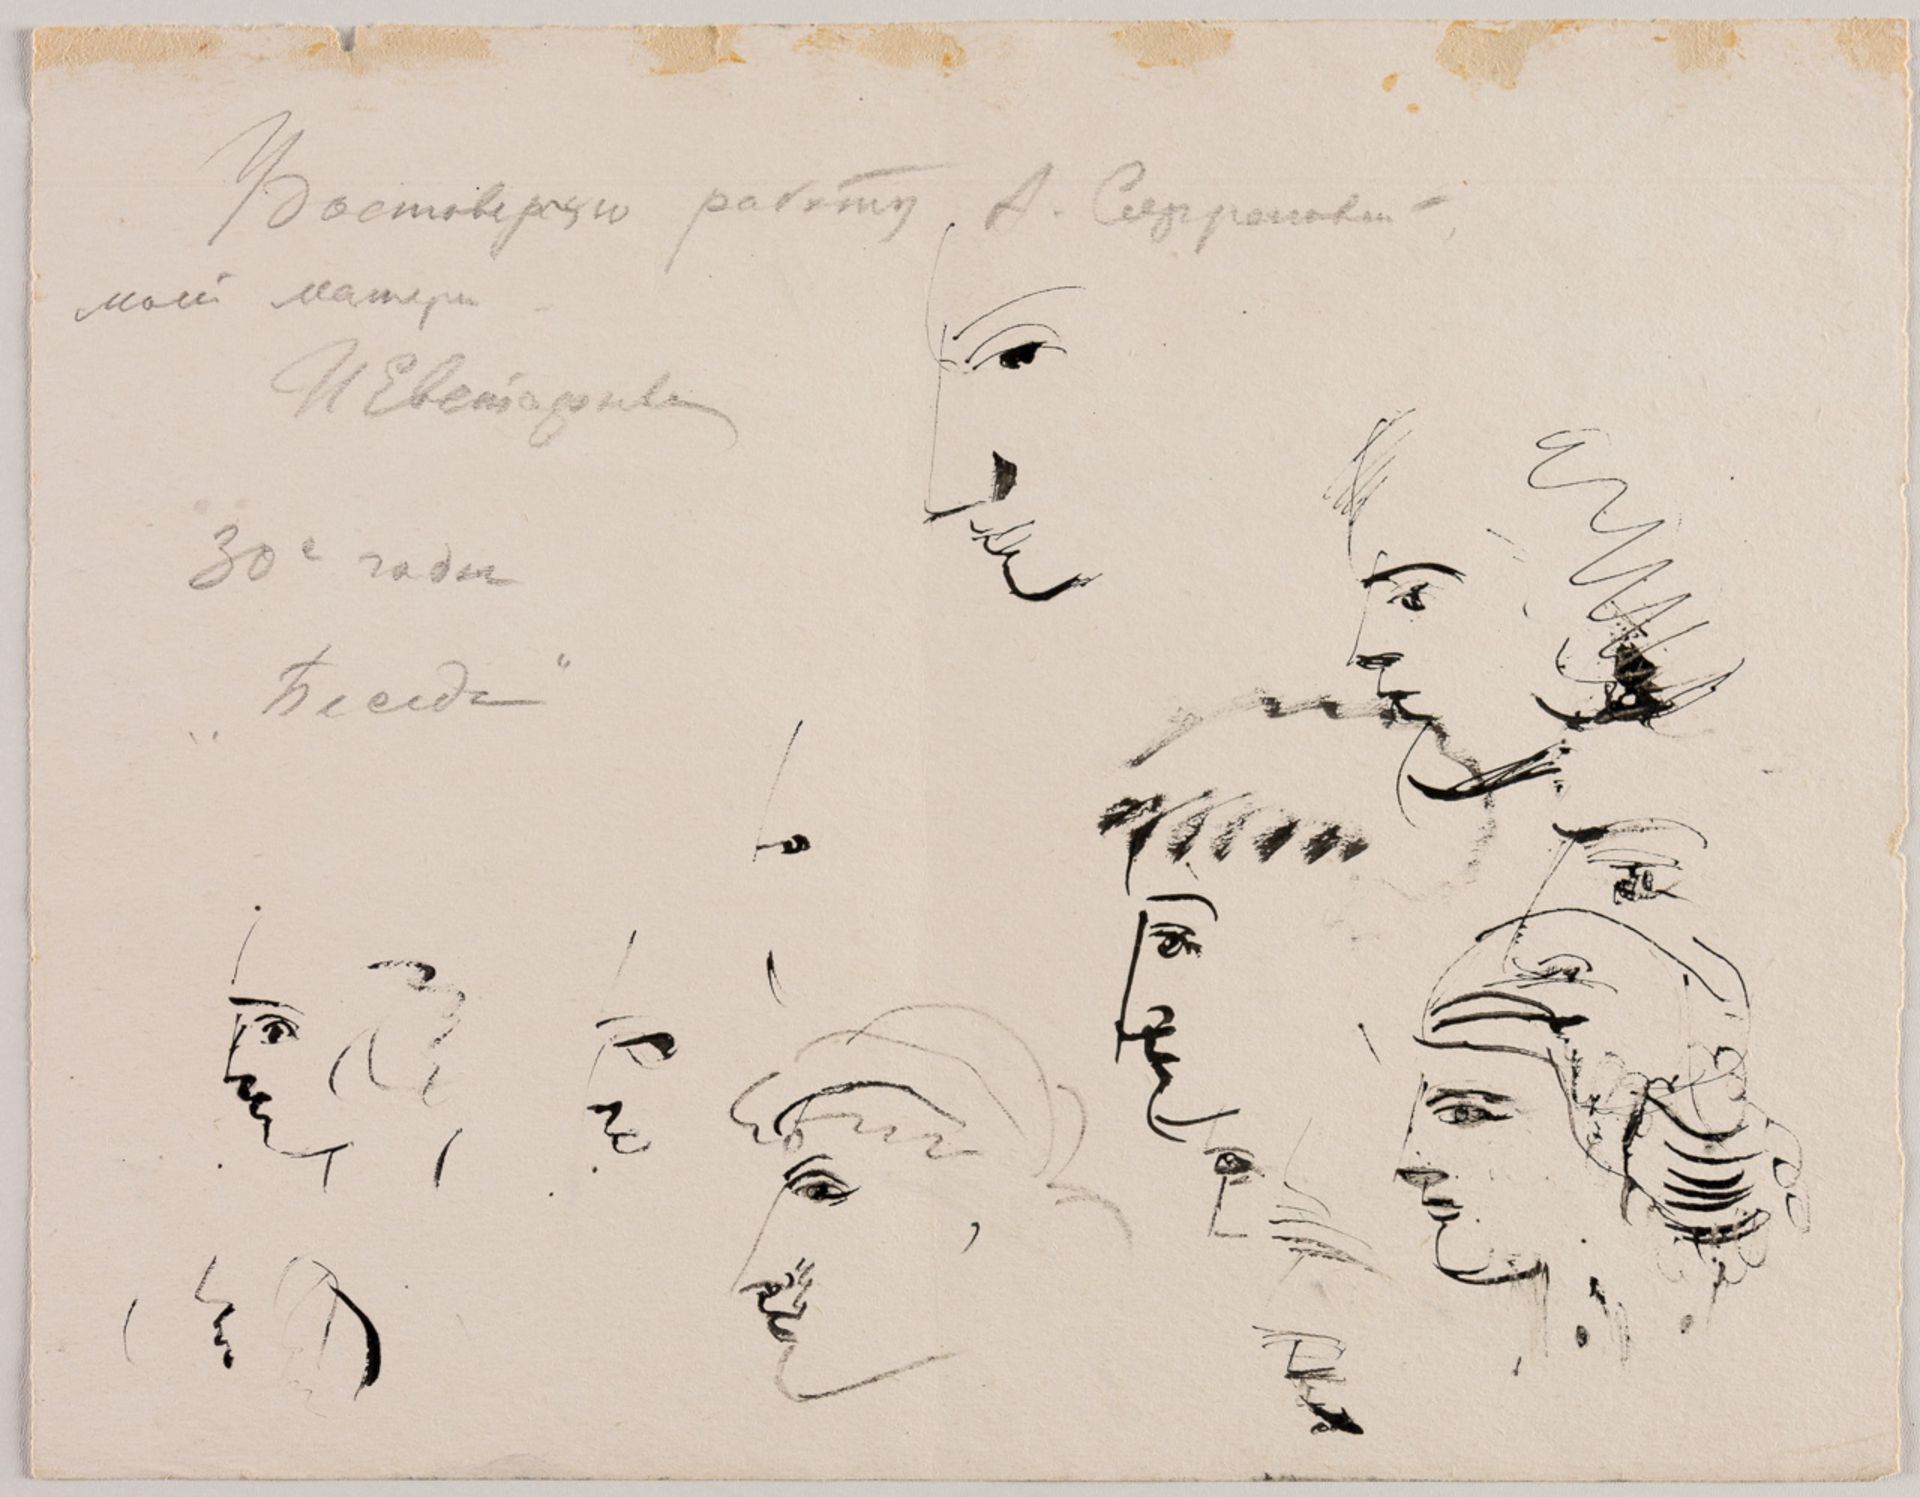 Удостоверяю работу А. Софроновой -
моей матери
И Евстафьева
30е годы
„Беседа“